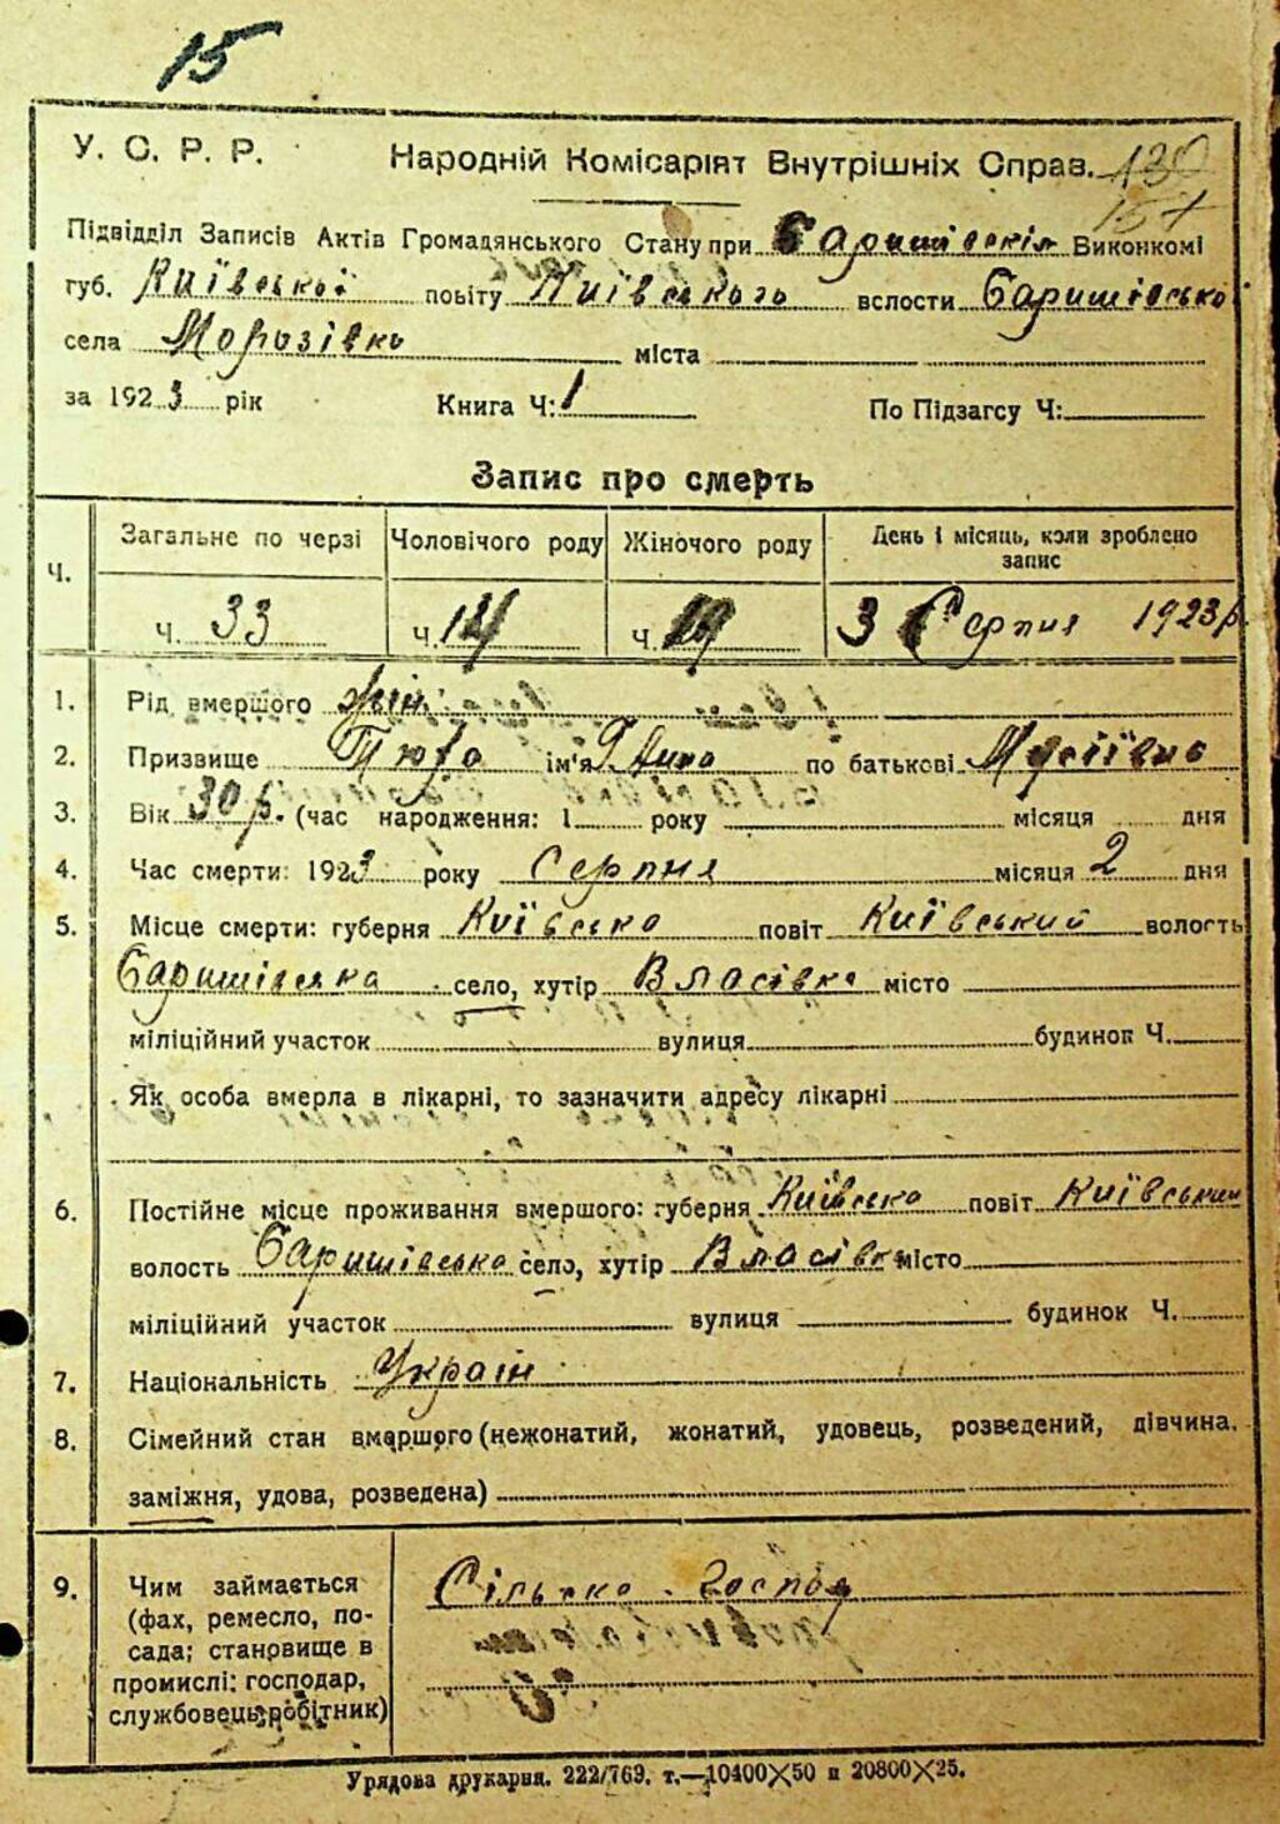 15
У. С. Р. Р. Народній Комісаріят Внутрішніх Справ. 130
157
Підвідділ Записів Актів Громадянського Стану при Баришівскім Виконкомі
губ. Київської повіту Київського волости Баришівсько
села Морозівка міста
за 1923 рік Книга Ч: 1 По Підзагсу Ч:
Запис про смерть
Ч. Загальне по черзі Чоловічого роду Жіночого роду День і місяць, коли зроблено запис
ч. 33 ч. 14 ч. 19 3 Серпня 1923 р
1. Рід вмершого жін.
2. Призвище ім'я Ганна по батькові Мусіївна
3. Вік 30 р. (час народження: 1 року місяця дня
4. Час смерти: 1923 року Серпня місяця 2 дня
5. Місце смерти: губерня Київсько повіт Київський волость
Баришівська село, хутір Власівка місто
міліційний участок вулиця будинок Ч.
Як особа вмерла в лікарні, то зазначити адресу лікарні
6. Постійне місце проживання вмершого: губерня Київсько повіт Київський
волость Баришівсько село, хутір Власівка місто
міліційний участок вулиця будинок Ч.
7. Національність Украін
8. Сімейний стан вмершого (нежонатий, жонатий, удовець, розведений, дівчина.
заміжня, удова, розведена)
9. Чим займається Сільсько-господ
(фах, ремесло, по-
сада; становище в
промислі: господар,
службовець, робітник)
Урядова друкарня. 222/769. т.—10400×50 и 20800×25.